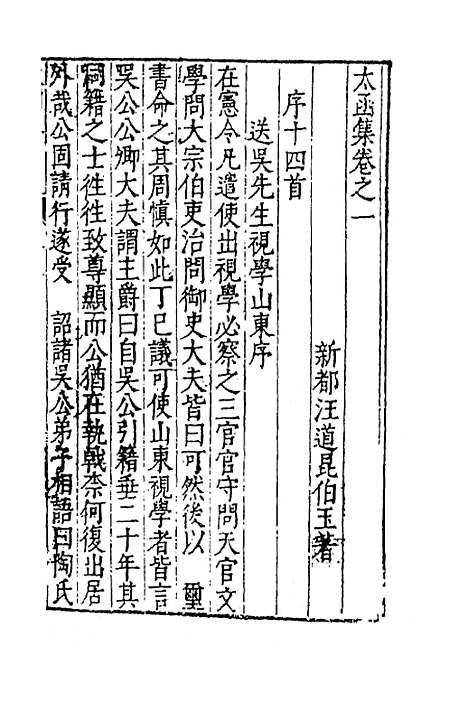 太函集卷之一
新都汪道昆伯玉著
序十四首
送吳先生視學山東序
在憲令凡遣使出視學必察之三官官守問天官文
學問大宗伯吏治問御史大夫皆曰可然後以　璽
書命之其周慎如此丁巳議可使山東視學者皆言
吳公公卿大夫謂主爵曰自吳公引籍垂二十年其
同籍之士徃徃致尊顯而公猶在執戟柰何復出居
外哉公固請行遂受　詔諸吳公弟子相語曰陶氏